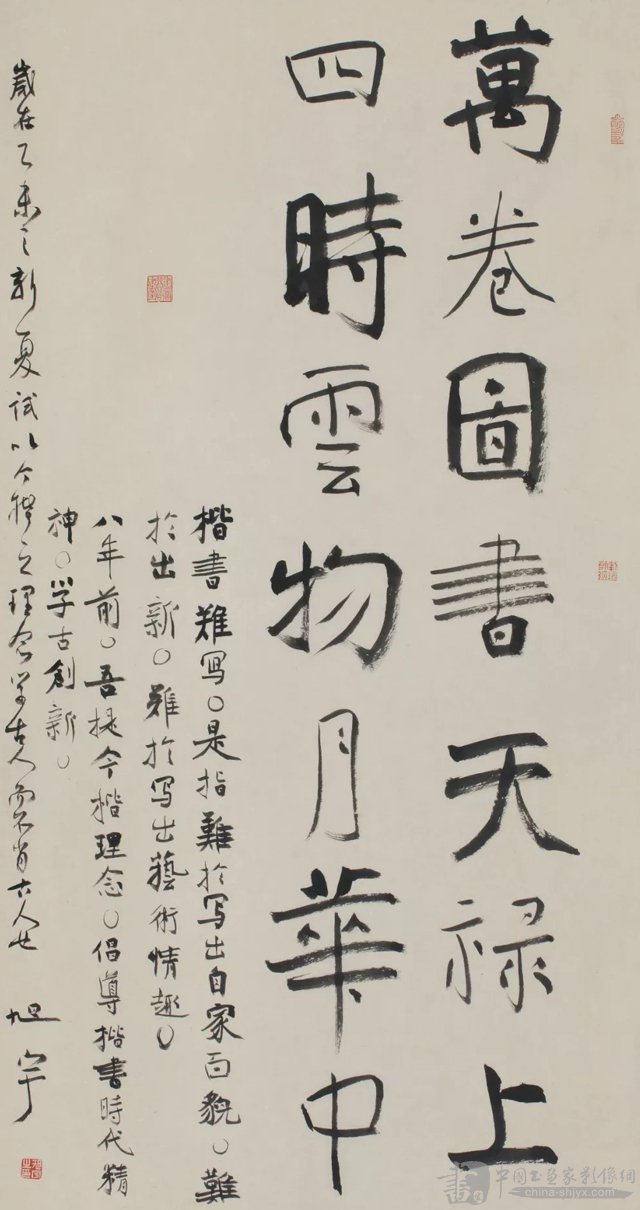 萬卷圖書天禄上
四時雲物月華中
楷書難写○是指難於写出自家面貌○難
於出新○難於写出藝術情趣○
八年前○吾提今楷理念○倡導楷書時代精
神○学古創新○
歲在乙未之新夏試以今楷之理念学古人而不肖古人也 旭宇
中國書画家影像網
china-shjyx.com